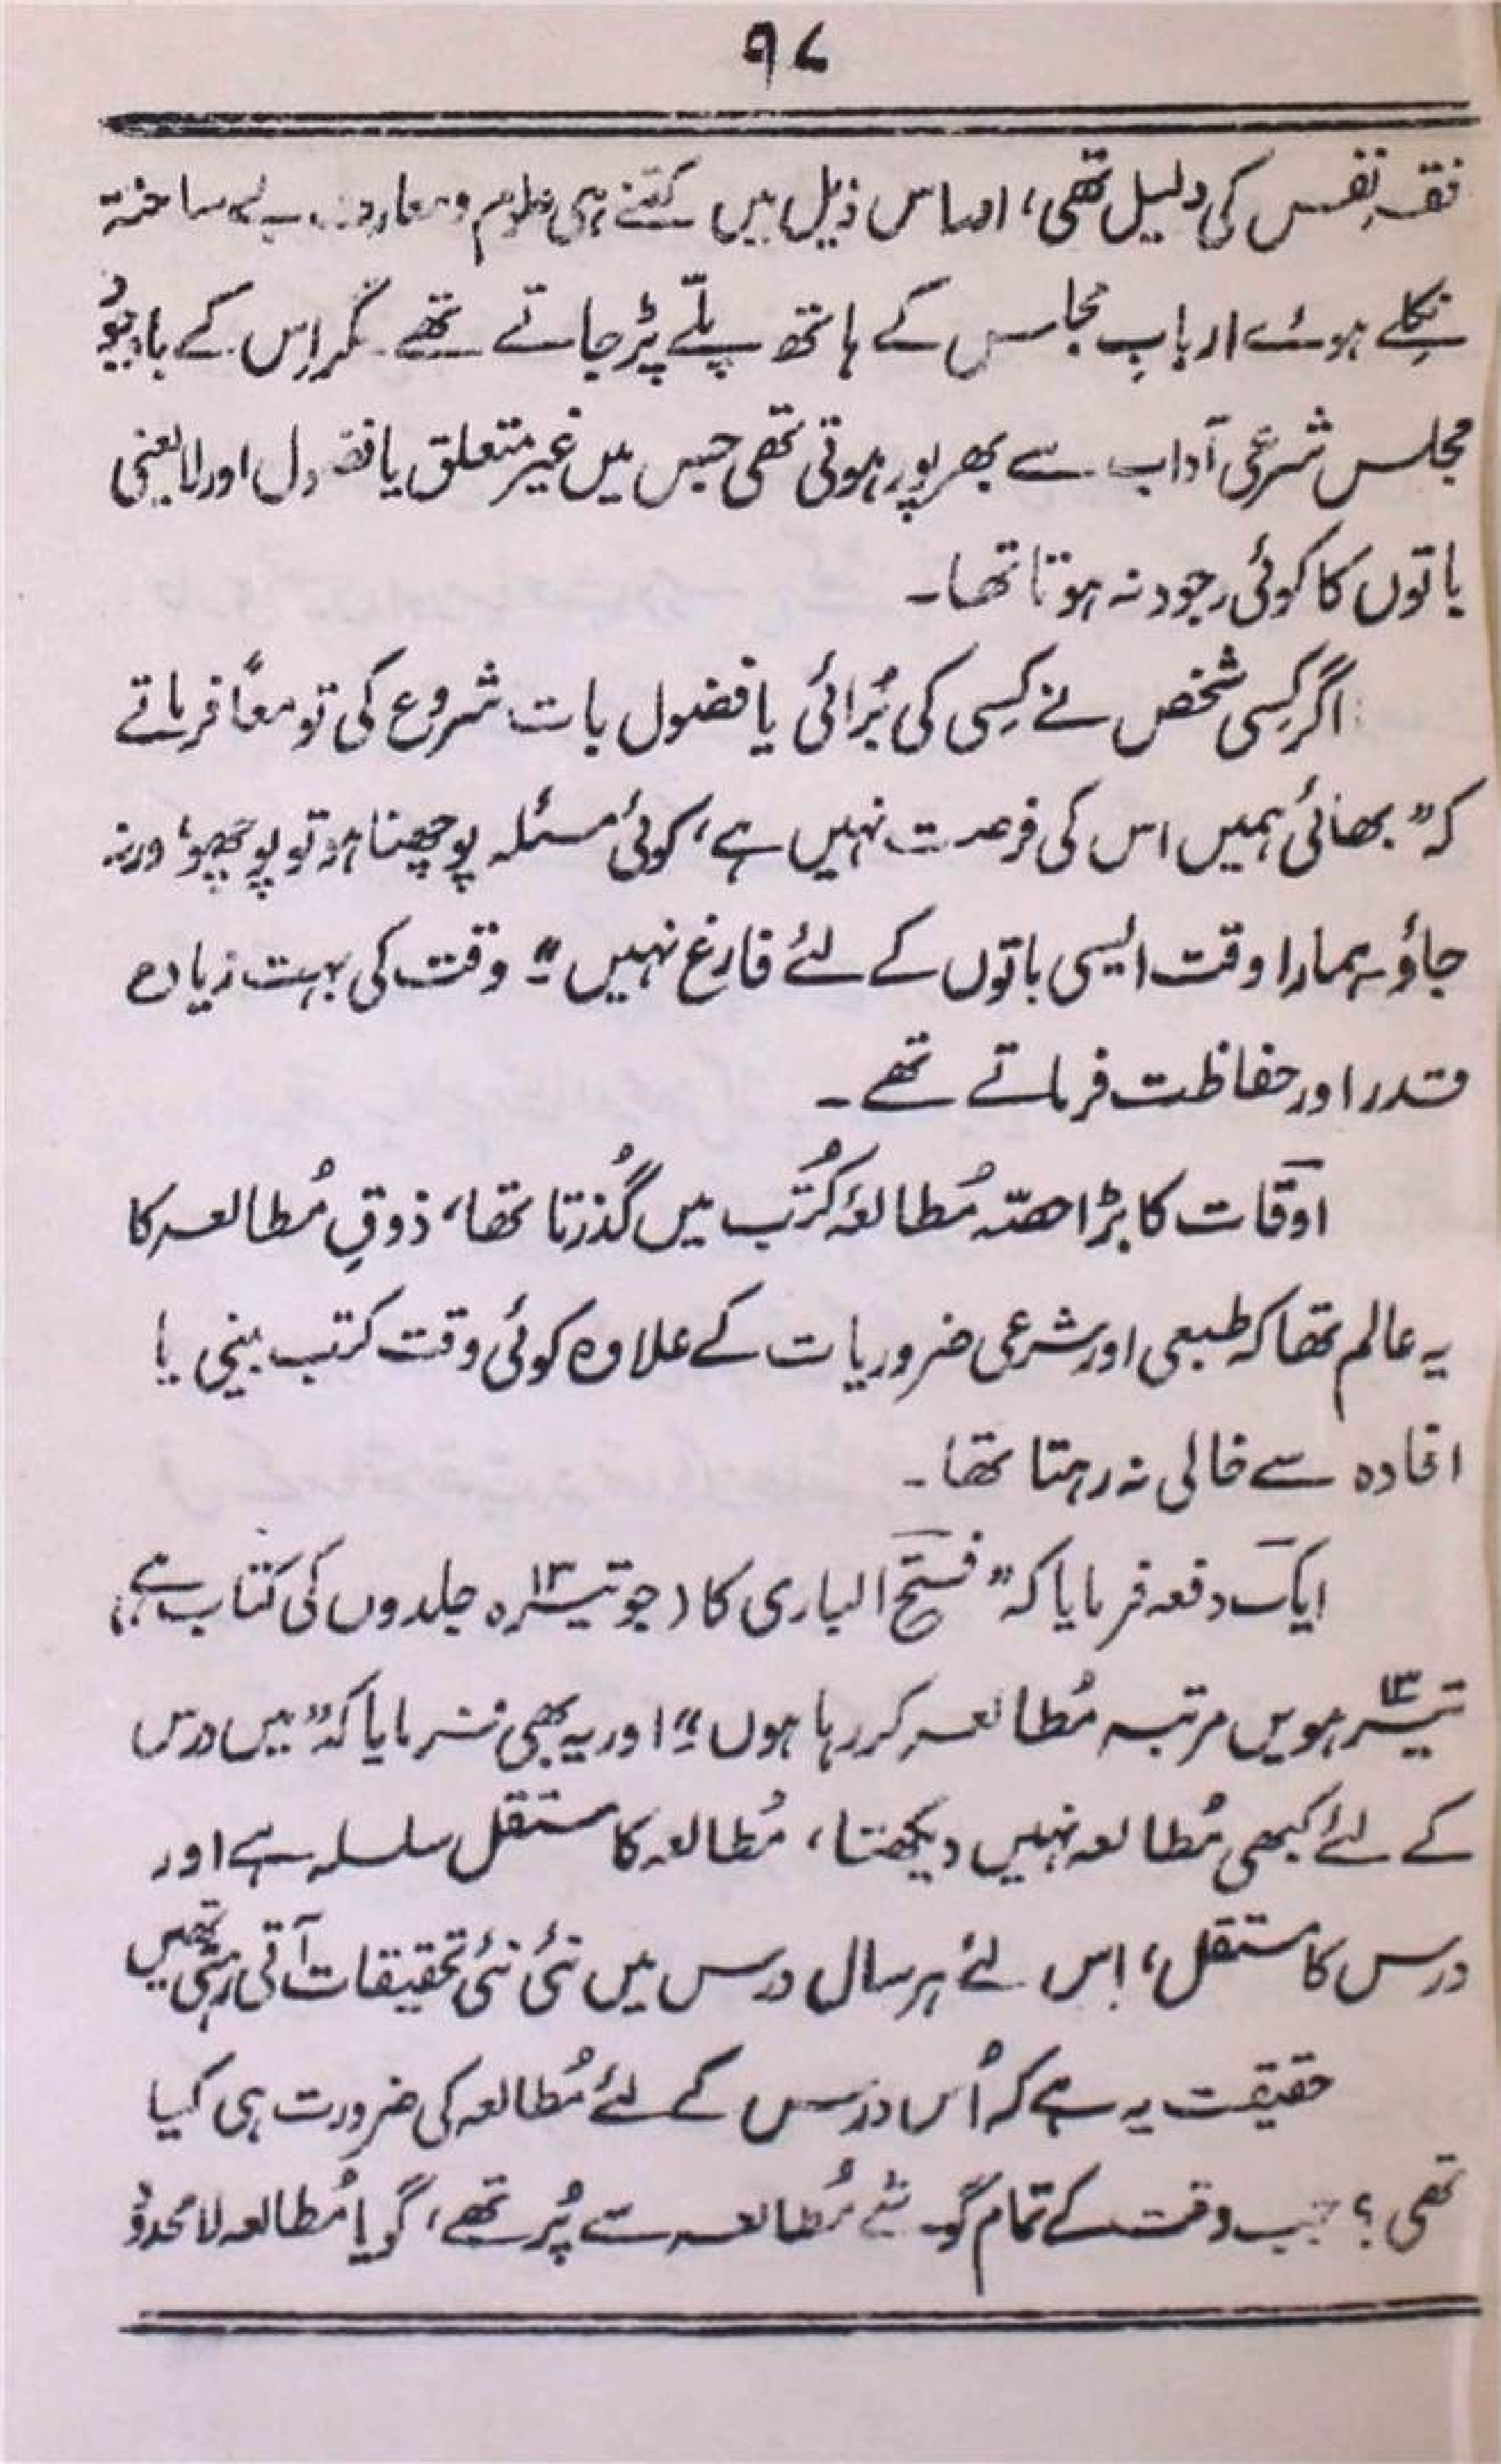 ۹۷
فقہِ نفس کی دلیل تھی، اور اس ذیل میں کتنے ہی علوم و معارف بے ساختہ
نکلے ہوئے اربابِ مجالس کے ہاتھ پلّے پڑ جاتے تھے۔ مگر اِس کے باوجود
مجلس شرعی آداب سے بھرپور ہوتی تھی جس میں غیر متعلق یا فضول اور لایعنی
باتوں کا کوئی وجود نہ ہوتا تھا۔
اگر کِسی شخص نے کِسی کی بُرائی یا فضول بات شروع کی تو معاً فرماتے
کہ ”بھائی ہمیں اس کی فرصت نہیں ہے، کوئی مسئلہ پوچھنا ہو تو پوچھو، ورنہ
جاؤ۔ ہمارا وقت ایسی باتوں کے لئے فارغ نہیں“۔ وقت کی بہت زیادہ
قدر اور حفاظت فرماتے تھے۔
اوقات کا بڑا حصّہ مُطالعۂ کُتب میں گُذرتا تھا، ذوقِ مُطالعہ کا
یہ عالم تھا کہ طبعی اور شرعی ضروریات کے علاوہ کوئی وقت کتب بینی یا
افادہ سے خالی نہ رہتا تھا۔
ایک دفعہ فرمایا کہ ”فتح الباری کا (جو تیرہ ۱۳ جلدوں کی کتاب ہے)
تیرہویں ۱۳ مرتبہ مُطالعہ کر رہا ہوں“۔ اور یہ بھی فرمایا کہ ”میں درس
کے لئے کبھی مُطالعہ نہیں دیکھتا، مُطالعہ کا مستقل سلسلہ ہے اور
درس کا مستقل، اِس لئے ہر سال درس میں نئی نئی تحقیقات آتی رہتی تھیں
حقیقت یہ ہے کہ اُس درس کے لئے مُطالعہ کی ضرورت ہی کیا
تھی؟ جب وقت کے تمام گوشے مُطالعہ سے پُر تھے، گویا مُطالعہ لامحدود